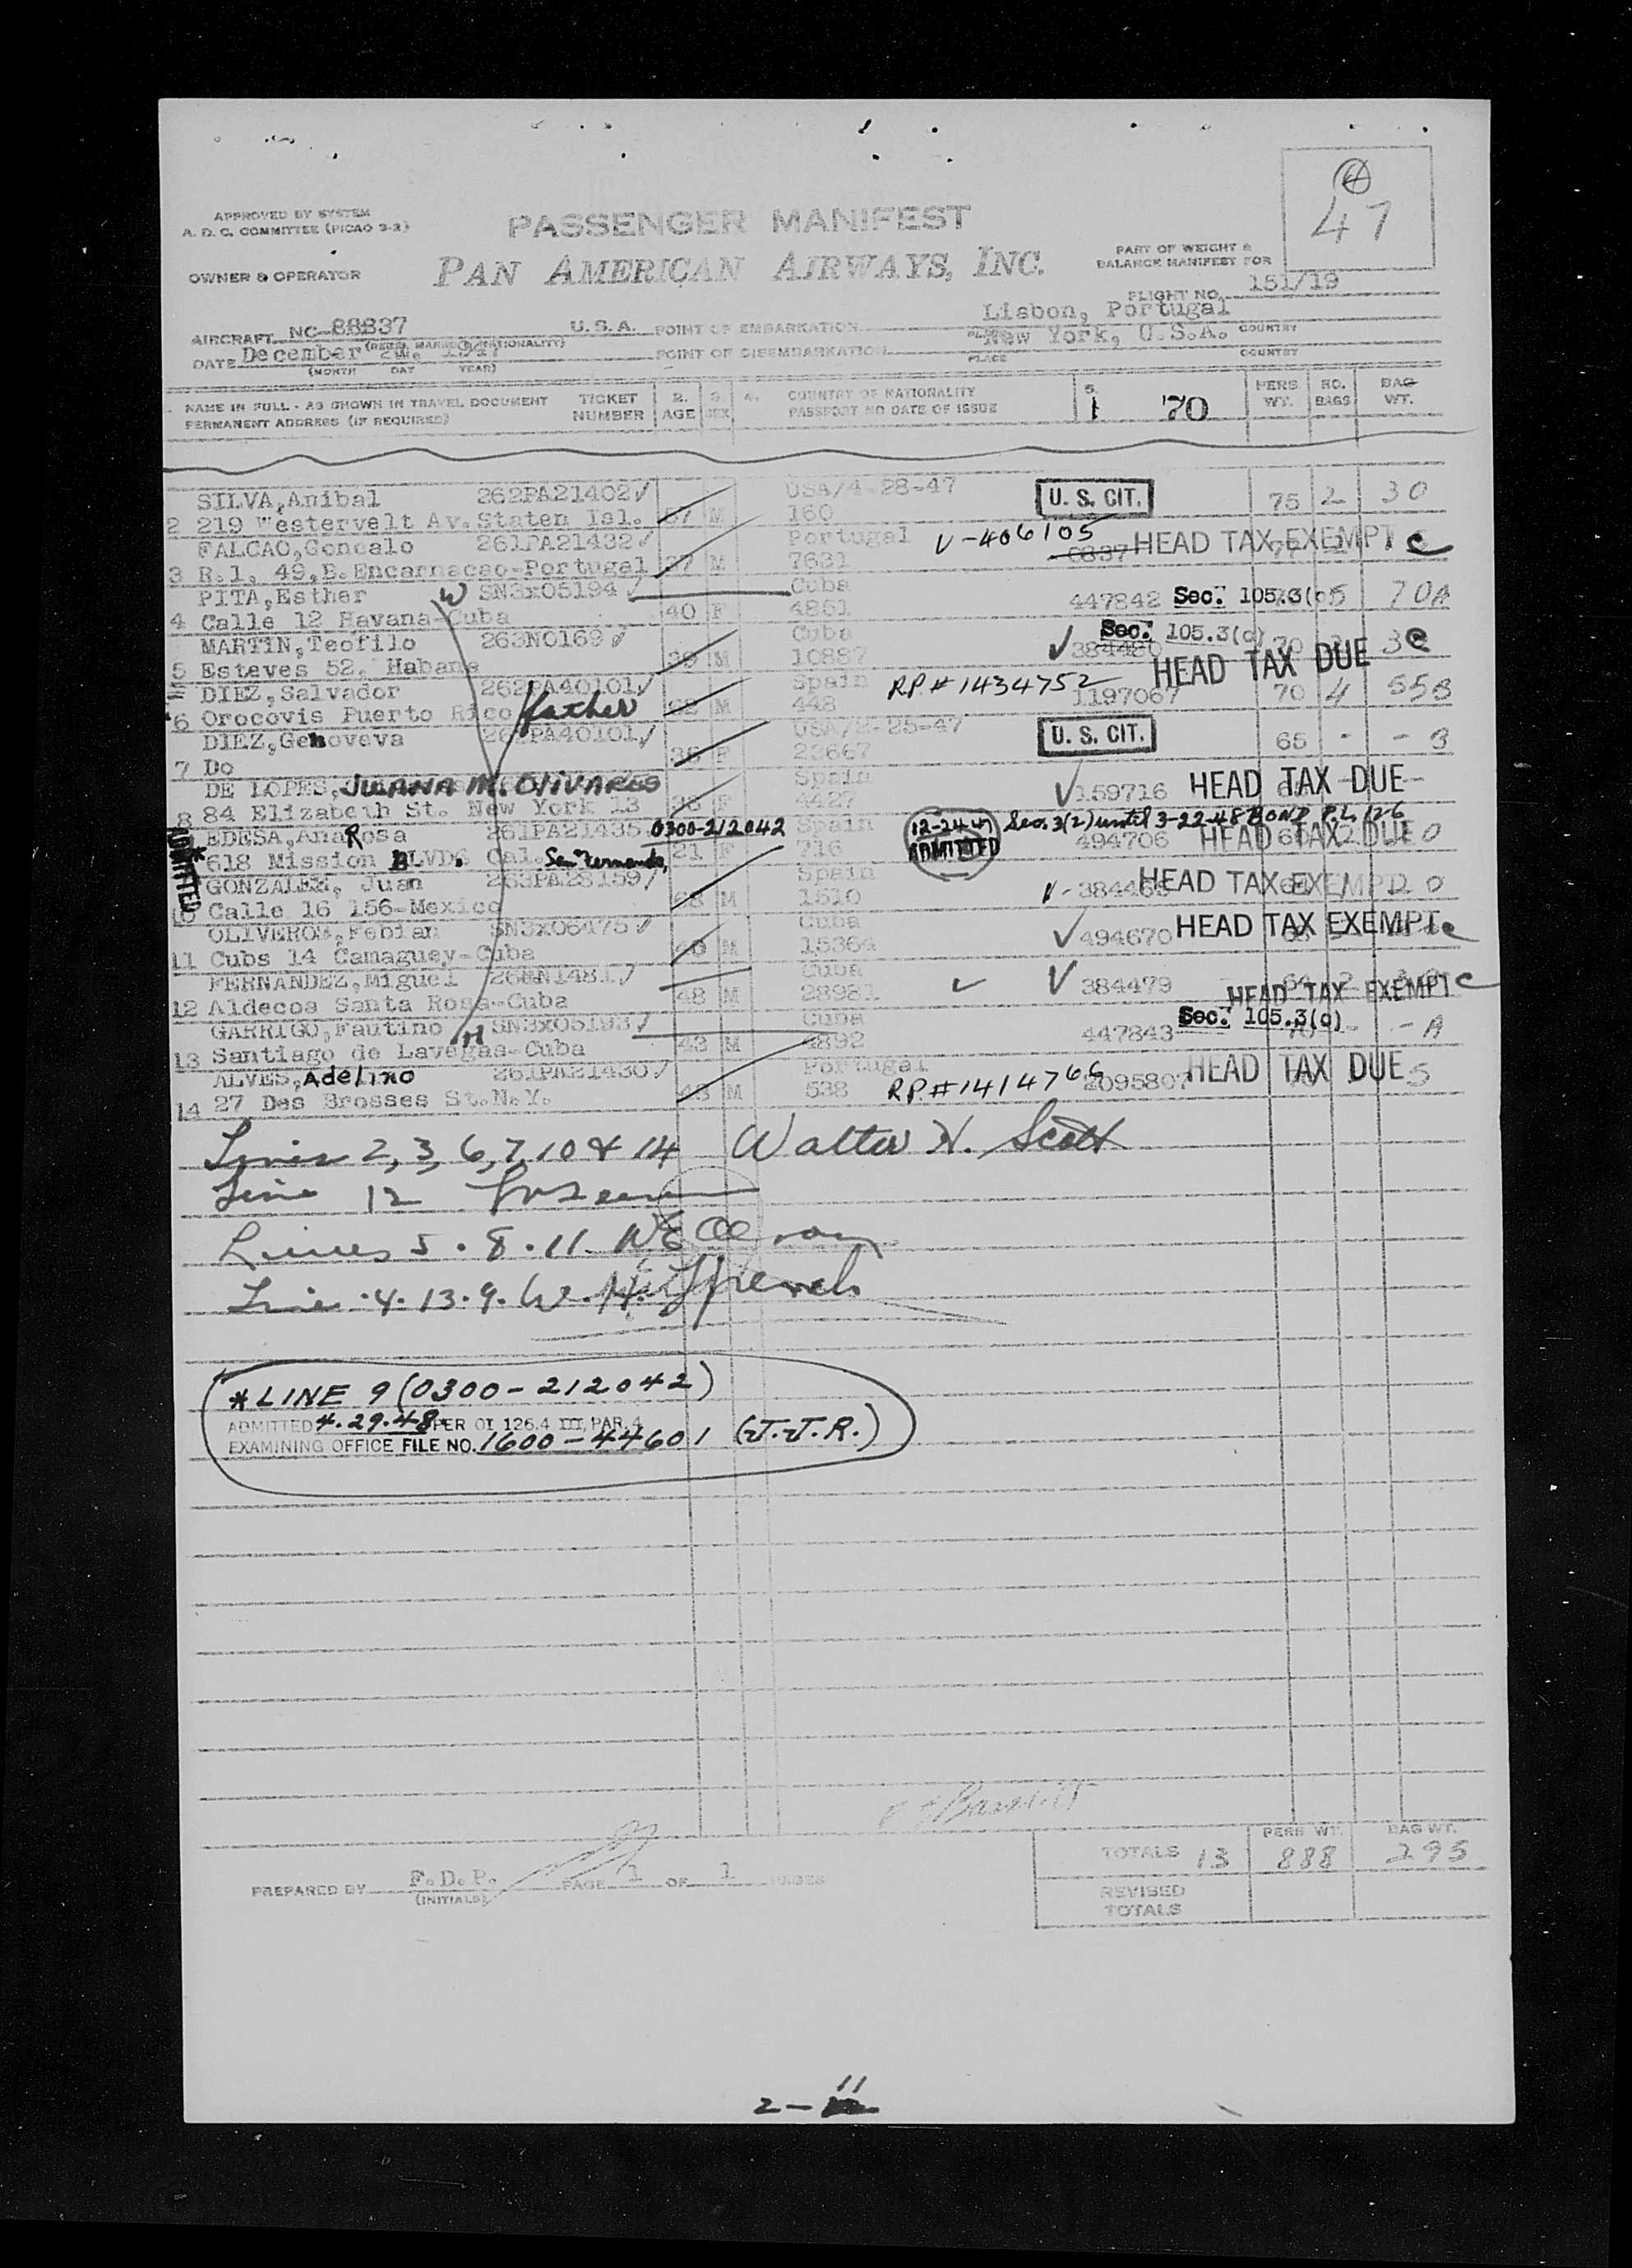 47
APPROVED BY SYSTEM
A. D. C. COMMITTEE (PICAO 9-2)
PASSENGER MANIFEST
OWNER & OPERATOR
PAN AMERICAN AIRWAYS, INC.
PART OF WEIGHT &
BALANCE MANIFEST FOR
FLIGHT NO. 151/19
AIRCRAFT NC-88837 U.S.A. POINT OF EMBARKATION Lisbon, Portugal COUNTRY
DATE December 1947 POINT OF DISEMBARKATION New York, U.S.A. COUNTRY
(MONTH DAY YEAR) PLACE
NAME IN FULL - AS SHOWN IN TRAVEL DOCUMENT TICKET 2. 3. 4. COUNTRY OF NATIONALITY 5. PERS NO. BAG
PERMANENT ADDRESS (IF REQUIRED) NUMBER AGE SEX PASSPORT NO DATE OF ISSUE 1 70 WT. BAGS WT.
SILVA, Anibal 262PA21402 USA/4-28-47 U. S. CIT. 75 2 30
2 219 Westervelt Av. Staten Isl. M 160
FALCAO, Goncalo 261PA21432 Portugal V-406105 HEAD TAX EXEMPT C
3 R.1, 49, B. Encarnacao-Portugal 37 M 7631
PITA, Esther W SN3x05194 Cuba 447842 Sec. 105.3(c) 5 70A
4 Calle 12 Havana-Cuba 40 F 4861
MARTIN, Teofilo 263N0169 Cuba 384480 Sec. 105.3(c)
5 Esteves 52, Habana 39 M 10887 HEAD TAX DUE
DIEZ, Salvador 262PA40101 Spain RP#1434752 1197067 70 4 55B
6 Orocovis Puerto Rico father M 448
DIEZ, Genoveva 262PA40101 USA/2-25-47 U. S. CIT. 65 - - 3
7 Do F 22667
DE LOPES, JUANA M. OLIVARES Spain 159716 HEAD TAX DUE
8 84 Elizabeth St. New York 13 F 4427
EDESA, AnaRosa 261PA21435 0300-212042 Spain 12-24-47 ADMITTED Sec. 3(2) until 3-22-48 BOND P.L. 126
ADMITTED 618 Mission BLVD. Cal. San Fernando, 21 F 716 494706 HEAD TAX DUE
GONZALEZ, Juan 263PA28159 Spain 38446 HEAD TAX EXEMPT
Calle 16 156-Mexico M 1510
OLIVEROS, Febian SN3x06475 Cuba 494670 HEAD TAX EXEMPT
11 Cubs 14 Camaguey-Cuba M 15364
FERNANDEZ, Miguel Cuba 384479 64 2 HEAD TAX EXEMPT C
12 Aldecoa Santa Rosa-Cuba 48 M 28981
GARRIGO, Fautino H SN3x05193 Cuba 447843 Sec. 105.3(c) - - A
13 Santiago de Lavegas-Cuba 43 M 4892
ALVES, Adelino 261PA21430 Portugal RP#1414766 2095807 HEAD TAX DUE
14 27 Des Brosses St. N.Y. M 538
Lines 2, 3, 6, 7, 10 & 14 Walter H. Scott
Line 12
Lines 5 . 8 . 11.
Line . 4 . 13 . 9 . W. H. French
*LINE 9 (0300-212042)
ADMITTED 4.29.48 PER OI 126.4 III, PAR. 4
EXAMINING OFFICE FILE NO. 1600-44601 (J.J.R.)
PERS WT. BAG WT.
TOTALS 13 888 295
PREPARED BY F.D.P. PAGE 1 OF 1 PAGES
(INITIALS)
REVISED
TOTALS
2-11